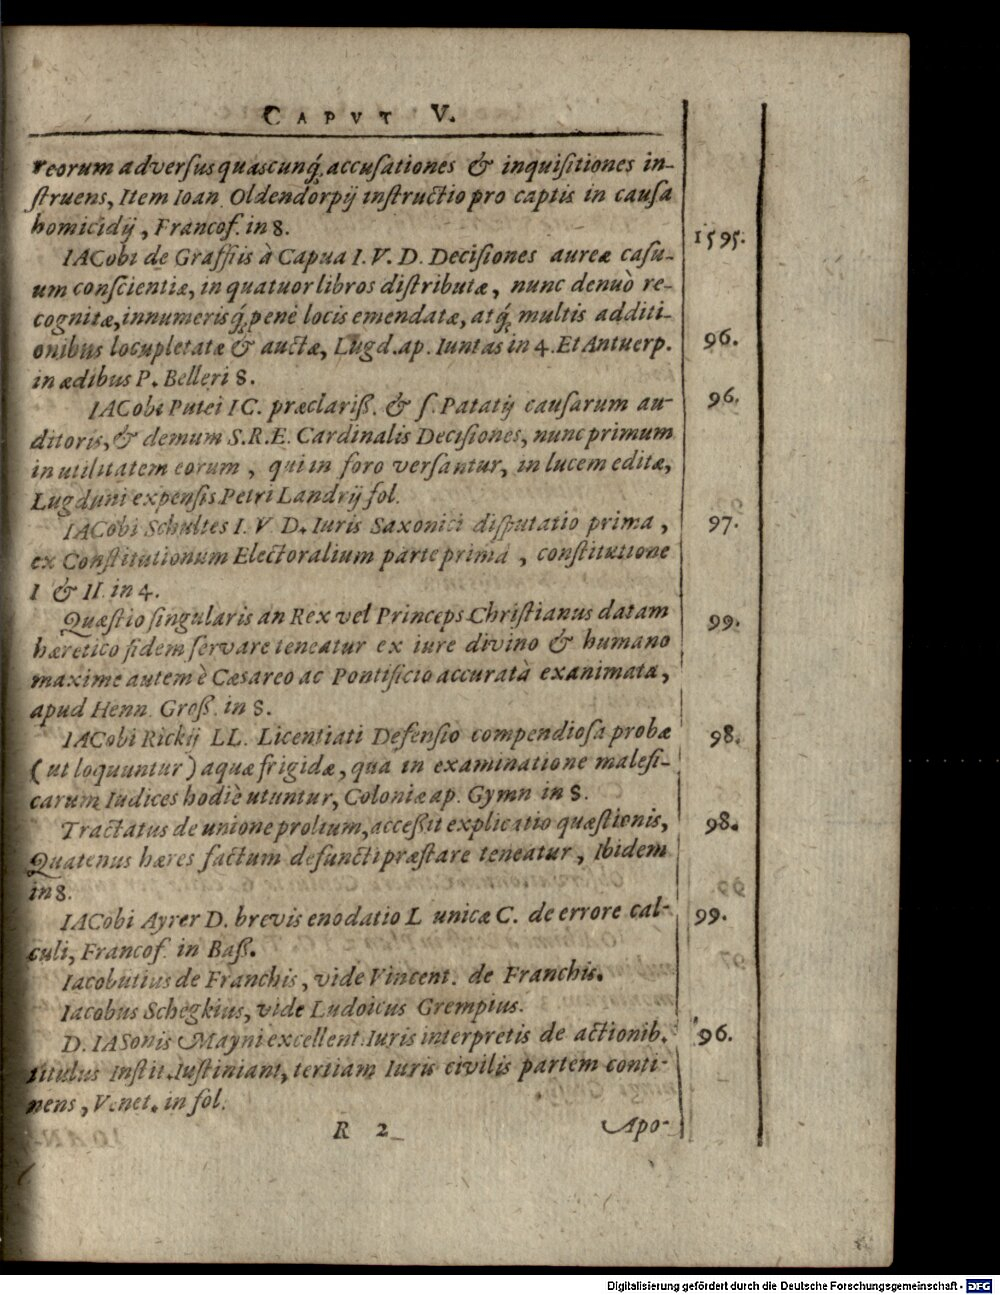 CAPVT V.
reorum adversus quascunq́; accusationes & inquisitiones in-
struens, Item Ioan. Oldendorpij instructio pro captis in causa
homicidij, Francof. in 8. 1595.
IACobi de Graffiis à Capua I. V. D. Decisiones aureæ casu-
um conscientiæ, in quatuor libros distributæ, nunc denuò re-
cognitæ, innumerisq́; penè locis emendatæ, atq́; multis additi-
onibus locupletatæ & auctæ, Lugd. ap. Iuntas in 4. Et Antuerp. 96.
in ædibus P. Belleri 8.
IACobi Putei IC. præclariß. & s. Patatij causarum au- 96.
ditoris, & demum S.R.E. Cardinalis Decisiones, nunc primum
in utilitatem eorum, qui in foro versantur, in lucem editæ,
Lugduni expensis Petri Landrij fol.
IACobi Schultes I. V D. Iuris Saxonici disputatio prima, 97.
ex Constitutionum Electoralium parte prima, constitutione
I & II. in 4.
Quæstio singularis an Rex vel Princeps Christianus datam 99.
hæretico fidem servare teneatur ex iure divino & humano
maxime autem è Cæsareo ac Pontificio accuratà exanimata,
apud Henn. Groß. in 8.
IACobi Rickij LL. Licentiati Defensio compendiosa probæ 98.
(ut loquuntur) aquæ frigidæ, qua in examinatione malefi-
carum Iudices hodiè utuntur, Coloniæ ap. Gymn in 8.
Tractatus de unione prolium, acceßit explicatio quæstionis, 98.
Quatenus hæres factum defuncti præstare teneatur, Ibidem
in 8.
IACobi Ayrer D. brevis enodatio L unicæ C. de errore cal- 99.
culi, Francof. in Baß.
Iacobutius de Franchis, vide Vincent. de Franchis.
Iacobus Schegkius, vide Ludoicus Grempius.
D. IASonis Mayni excellent. Iuris interpretis de actionib. 96.
titulus Instit. Iustiniani, tertiam Iuris civilis partem conti-
nens, Venet. in fol.
R 2 Apo-
Digitalisierung gefördert durch die Deutsche Forschungsgemeinschaft - DFG